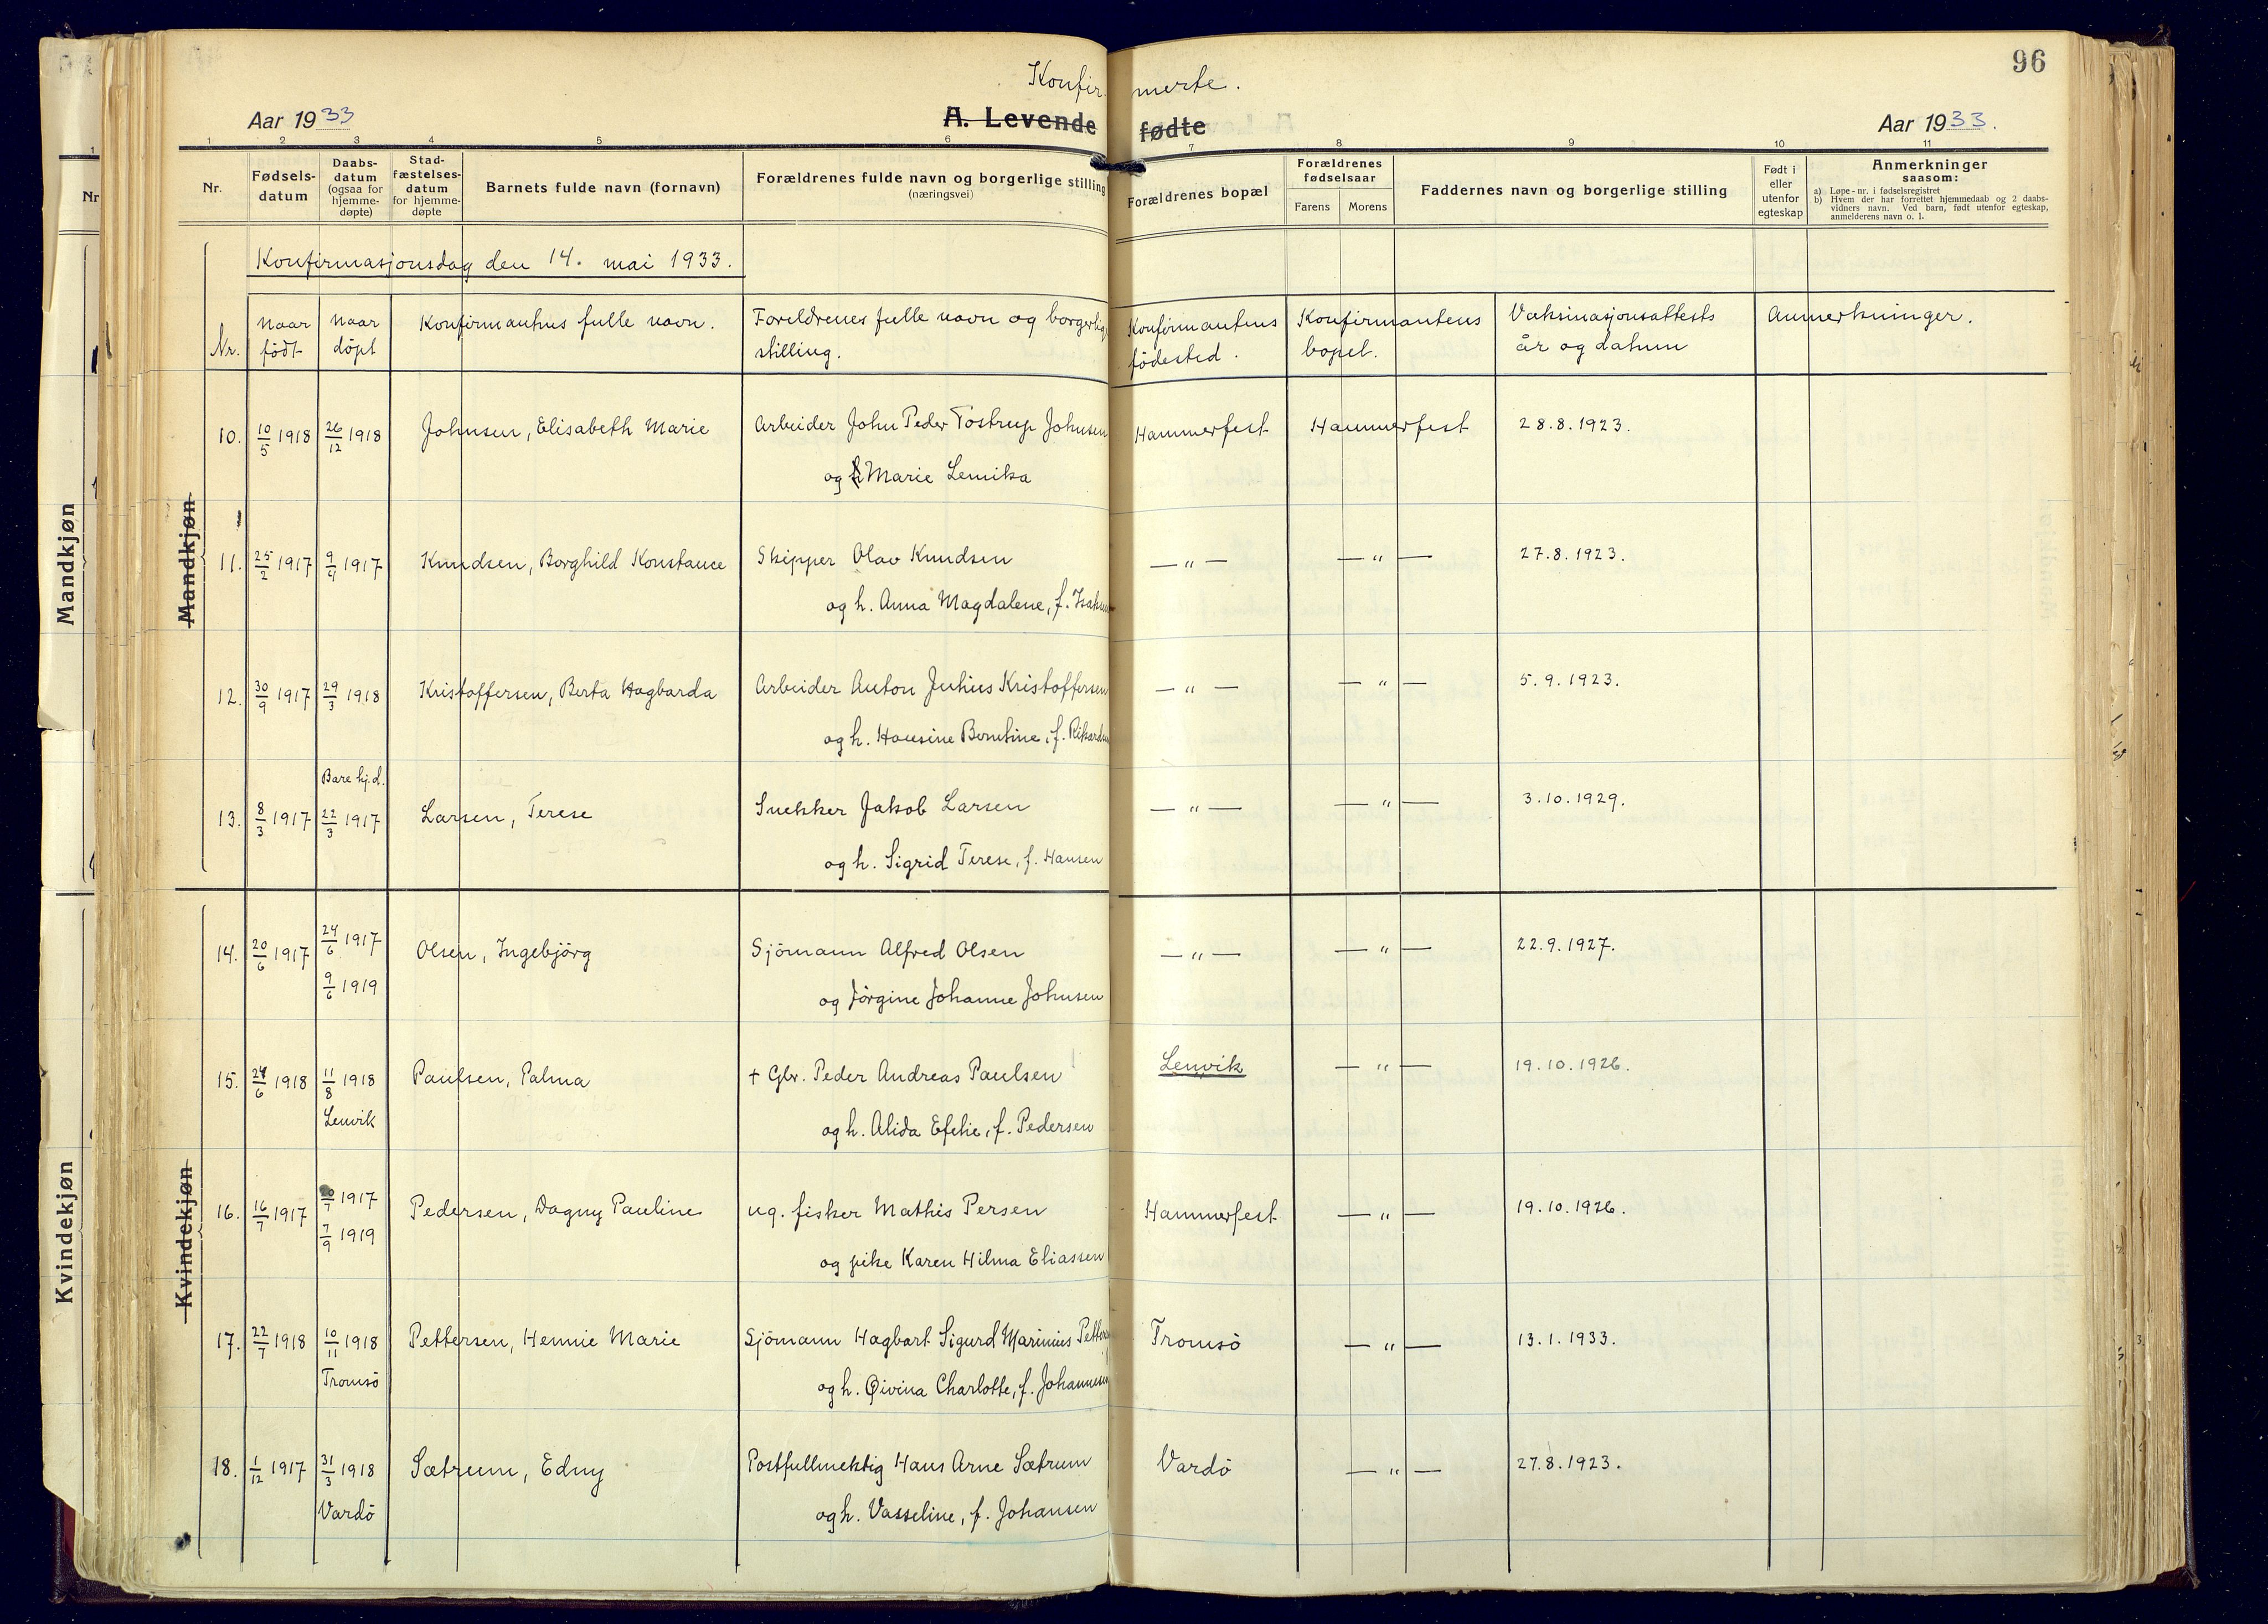 96
Konfirmerte.
Aar 1933 A. Levende fødte Aar 1933.
1 2 3 4 5 6 7 8 9 10 11
Nr. Fødselsdatum Daabsdatum (ogsaa for hjemmedøpte) Stadfæstelsesdatum for hjemmedøpte Barnets fulde navn (fornavn) Forældrenes fulde navn og borgerlige stilling (næringsvei) Forældrenes bopæl Forældrenes fødselsaar Farens Morens Faddernes navn og borgerlige stilling Født i eller utenfor egteskap Anmerkninger saasom:
a) Løpe-nr. i fødselsregistret
b) Hvem der har forrettet hjemmedaab og 2 daabsvidners navn. Ved barn, født utenfor egteskap, anmelderens navn o. l.
Konfirmasjonsdag den 14. mai 1933.
Nr. Naar født Naar döpt Konfirmantens fulle navn. Foreldrenes fulle navn og borgerlig stilling. Konfirmantens födested. Konfirmantens bopel. Vaksinasjonsattests år og datum Anmerkninger.
Mandkjøn
Mandkjøn
10. 10/5 1918 26/12 1918 Johnsen, Elisabeth Marie Arbeider John Peder Tostrup Johnsen Hammerfest Hammerfest 28.8.1923.
og Marie Lemika
11. 25/2 1917 9/4 1917 Knudsen, Borghild Konstance Skipper Olav Knudsen — " — — " — 27.8.1923.
og h. Anna Magdalene, f.
12. 30/9 1917 29/3 1918 Kristoffersen, Berta Hagbarda Arbeider Anton Julius Kristoffersen — " — — " — 5.9.1923.
og h. Hansine Berntine, f.
Bare hj.d.
13. 8/3 1917 22/3 1917 Larsen, Terese Snekker Jakob Larsen — " — — " — 3.10.1929.
og h. Sigrid Terese, f. Hansen
Kvindekjøn
Kvindekjøn
14. 20/6 1917 24/6 1917 Olsen, Ingebjörg Sjömann Alfred Olsen — " — — " — 22.9.1927.
9/6 1919 og Jörgine Johanne Johnsen
15. 24/6 1918 11/8 1918 Paulsen, Palma † Gbr. Peder Andreas Paulsen Lenvik — " — 19.10.1926.
Lenvik og h. Alida Efelie, f. Pedersen
16. 16/7 1917 20/7 1917 Pedersen, Dagny Pauline ug. fisker Mathis Persen Hammerfest — " — 19.10.1926.
7/9 1919 og pike Karen Hilma Eliassen
17. 22/7 1918 10/11 1918 Pettersen, Hennie Marie Sjömann Hagbart Sigurd Marinius Tromsö — " — 13.1.1933.
Tromsö og h. Øivina Charlotte, f. Johannesen
18. 1/12 1917 31/3 1918 Sætrum, Edny Postfullmektig Hans Arne Sætrum Vardö — " — 27.8.1923.
Vardö og h. Vasseline, f. Johansen